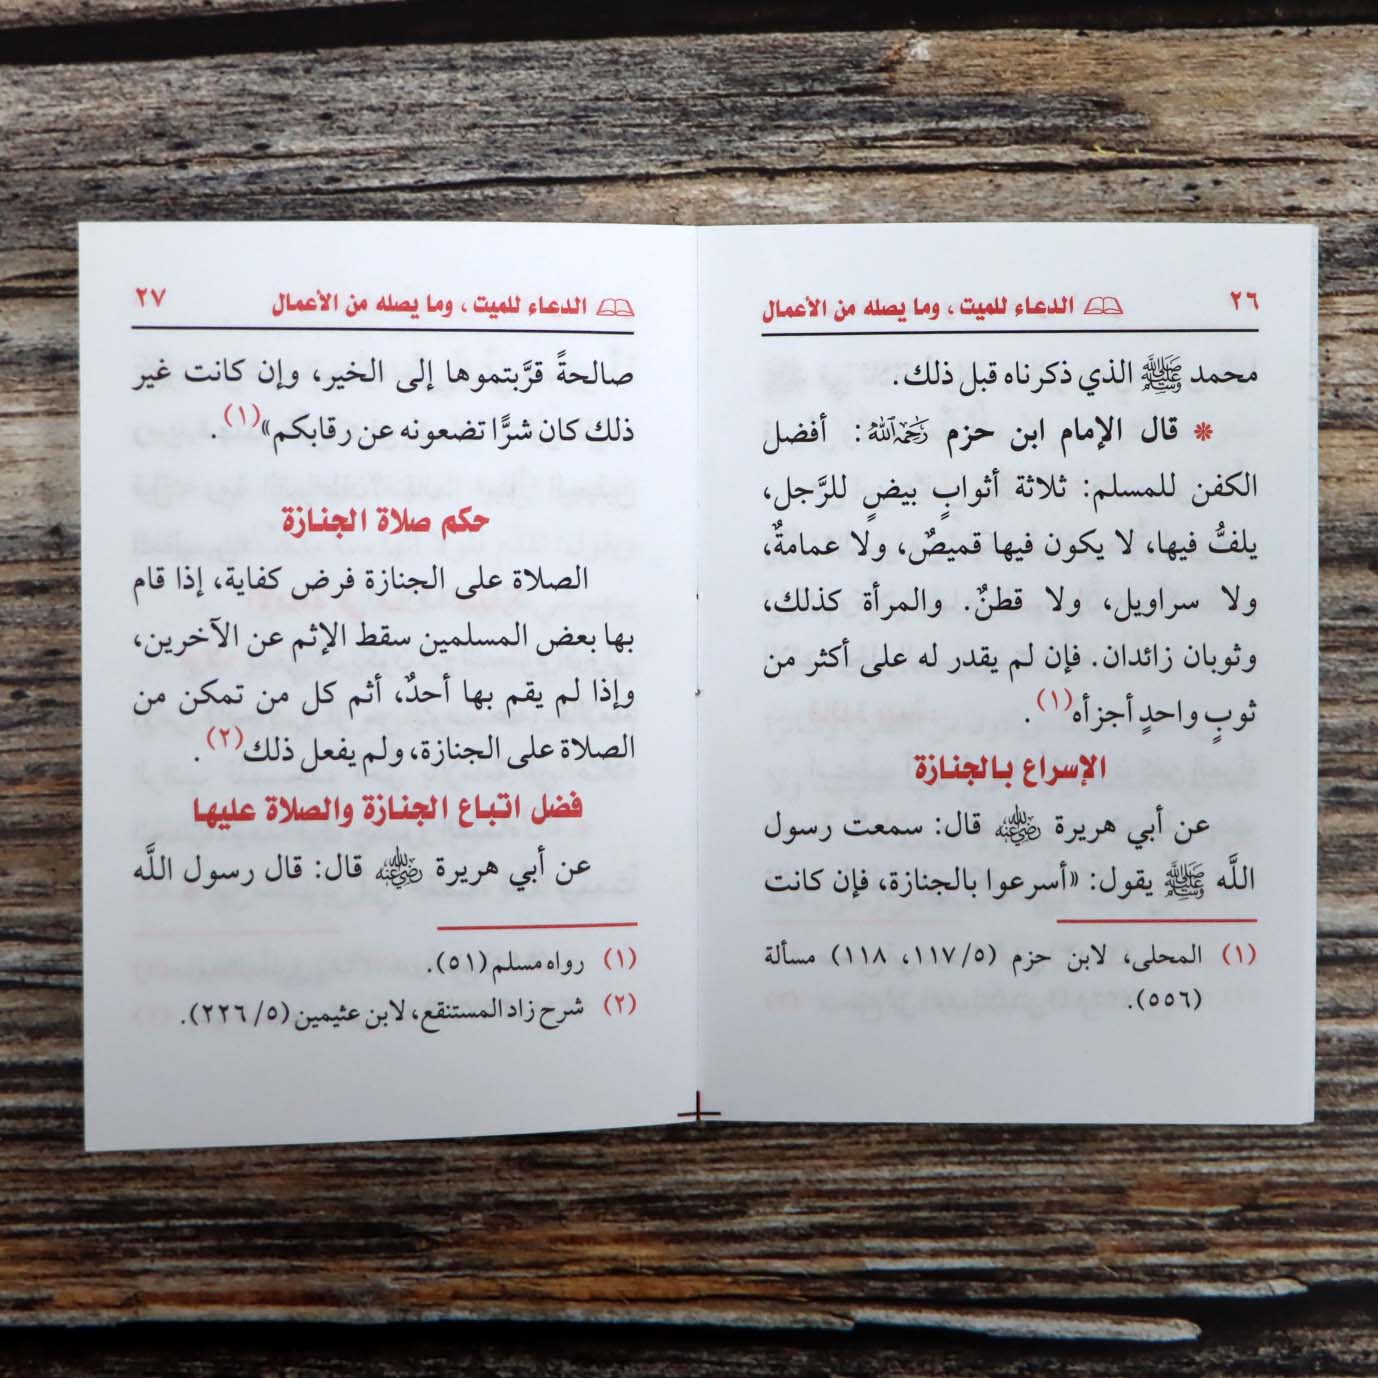 ٢٦ الدعاء للميت، وما يصله من الأعمال
محمد ﷺ الذي ذكرناه قبل ذلك.
❋ قال الإمام ابن حزم رَحِمَهُ ٱللَّهُ: أفضل
الكفن للمسلم: ثلاثة أثوابٍ بيضٍ للرَّجل،
يلفُّ فيها، لا يكون فيها قميصٌ، ولا عمامةٌ،
ولا سراويل، ولا قطنٌ. والمرأة كذلك،
وثوبان زائدان. فإن لم يقدر له على أكثر من
ثوبٍ واحدٍ أجزأه(١).
الإسراع بالجنازة
عن أبي هريرة رضي الله عنه قال: سمعت رسول
اللَّه ﷺ يقول: «أسرعوا بالجنازة، فإن كانت
(١) المحلى، لابن حزم (٥/ ١١٧، ١١٨) مسألة
(٥٥٦).
الدعاء للميت، وما يصله من الأعمال ٢٧
صالحةً قرَّبتموها إلى الخير، وإن كانت غير
ذلك كان شرًّا تضعونه عن رقابكم»(١).
حكم صلاة الجنازة
الصلاة على الجنازة فرض كفاية، إذا قام
بها بعض المسلمين سقط الإثم عن الآخرين،
وإذا لم يقم بها أحدٌ، أثم كل من تمكن من
الصلاة على الجنازة، ولم يفعل ذلك(٢).
فضل اتباع الجنازة والصلاة عليها
عن أبي هريرة رضي الله عنه قال: قال رسول اللَّه
(١) رواه مسلم (٥١).
(٢) شرح زاد المستنقع، لابن عثيمين (٥/ ٢٢٦).